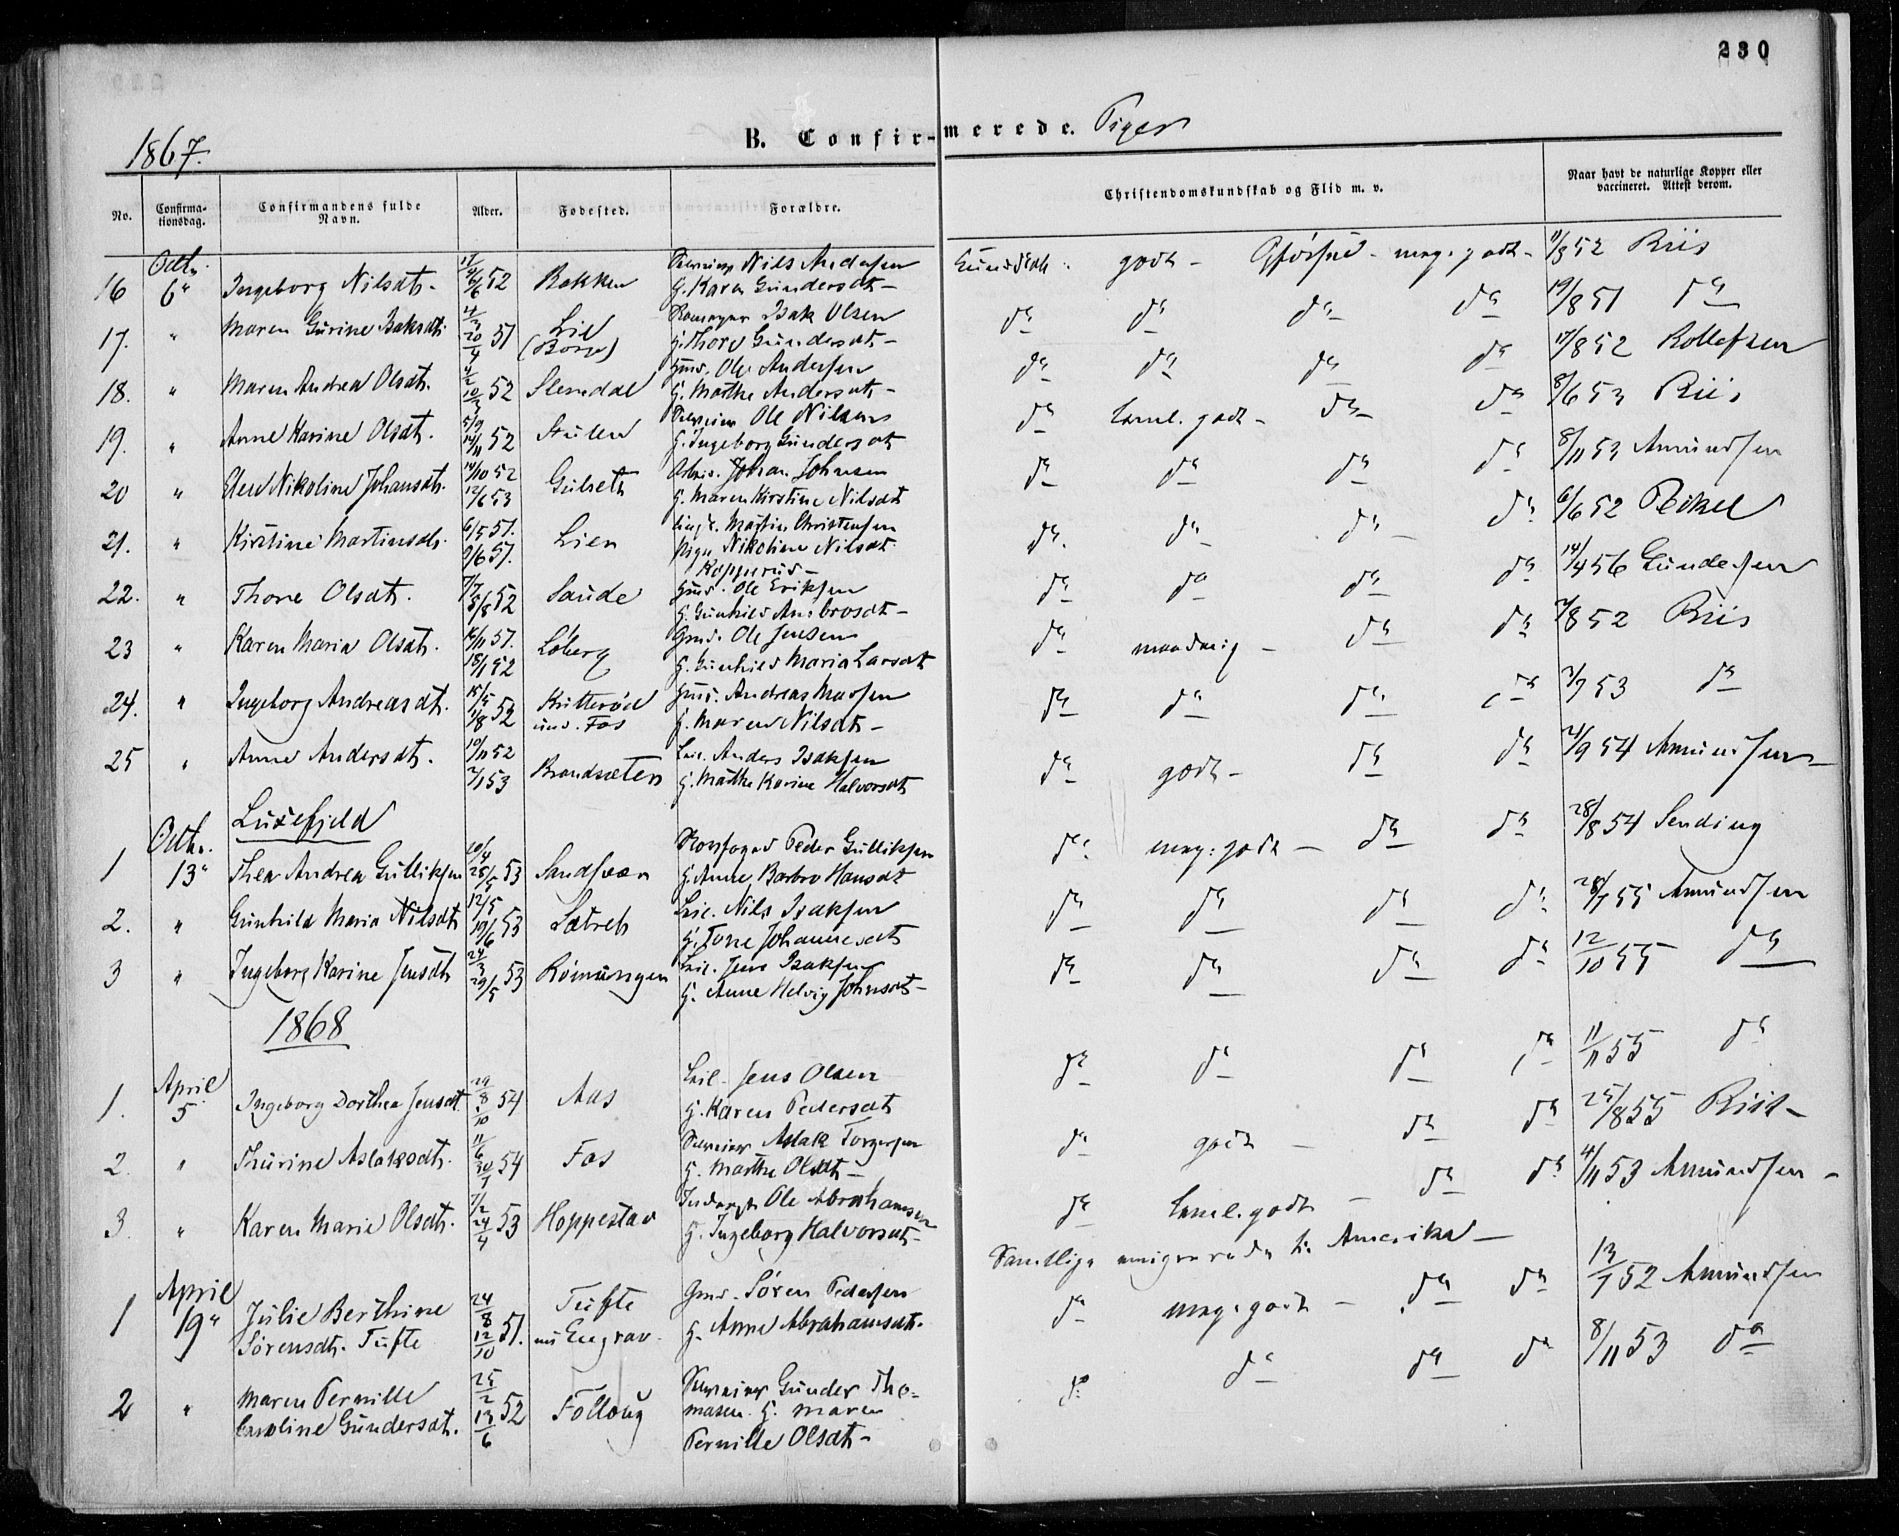 230
1867.
B. Confirmerede. Piger
No.
Confirma-
tionsdag.
Confirmandens fulde
Navn.
Alder.
Fødested.
Forældre.
Christendomskundskab og Flid m. v.
Naar havt de naturlige Kopper eller
vaccineret. Attest derom.
Octbr.
16 6" Ingeborg Nilsdt. 52 Bakken Nils Andersen
G. Karen Gundersdt. Kundsk. godt - Opførsel - meg. godt - 11/8 52 Riis
17. " Maren Gurine Isaksdt. 20/4 51 Lie Isak Olsen
G. Thore Gundersdt. da da da da 19/8 51 da
18. " Maren Andrea Olsdt. 52 Slemdal Gmd. Ole Andersen
G. Marthe Andersdt. da da da da 17/8 52 Rollefsen
19. " Anne Karine Olsdt. 5/9 14/11 52 Stulen Ole Nilsen
G. Ingeborg Gundersdt. da teml. godt - da da 8/6 53 Riis
20 " Nikoline Johansdt. 14/10 52 12/6 53 Gulseth Johan Johnsen
G. Maren Kirstine Nilsdt. da da da da 8/11 53 Amundsen
21. " Kirstine Martinsdt. 6/5 51. 9/6 51. Lien Ungk. Martin Christensen
Pige Nikoline Nilsdt.
Kopperud da da da da 6/6 52 Peikel
22. " Thone Olsdt. 7/7 8/8 52 Saude Gmd. Ole Eriksen
G. Gunhild Ambrosdt. da da da da 14/4 56 Gundersen
23 " Karen Maria Olsdt. 14/11 51. 18/1 52 Løberg Gmd. Ole Jensen
G. Gunhild Maria Larsdt. da maadelig - da da 7/8 52 Riis
24. " Ingeborg Andreasdt. 15/5 1/8 52 Kutterød
und. Fos Gmd. Andreas Madsen
G. Maren Nilsdt. da da da da 7/7 53 da
25 " Anne Andersdt. 10/11 52 2/1 53 Brandsæter Leil. Anders Isaksen
G. Marthe Karine Halvorsdt. da godt - da da 21/9 54 Amundsen
Luxefjeld
Octbr.
1 13" Thea Andrea Gulliksen 28/5 53 Sandsvær Skovfoged Peder Gulliksen
G. Anne Barbro Hansdt. da meg: godt - da da 28/8 54 Sending
2. " Gunhild Maria Nilsdt. 12/5 19/6 53 Sætreh Leil. Nils Isaksen
G. Tone Johannesdt. da da da da 28/7 55 Amundsen
3 " Ingeborg Karine Jensdt. 24/3 29/5 53 Rømungen Leil. Jens Isaksen
G. Anne Helvig Johnsdt. da da da da 12/10 55 da
1868
April
1. 5 Ingeborg Dorthea Jensdt. 29/8 54 Aas Leil. Jens Olsen
G. Karen Pedersdt. da da da da 11/11 55 da
2. " Thurine Aslaksdt. 11/6 30/7 54 Fos Aslak Torgersen
G. Marthe Olsdt. da godt - da da 25/8 55 Riis
3. " Karen Marie Olsdt. 7/2 24/4 53 Hoppestad Inderst Ole Abrahamsen
G. Ingeborg Halvorsdt. da teml. godt - da da 4/11 53 Amundsen
Samtlige emigrerede til Amerika
April
1 19" Julie Berthine
Sørensdt. Tufte 24/8 12/10 51. Tufte
nu Engrav. Gmd. Søren Pedersen
G. Anne Abrahamsdt. da meg. godt - da da 13/7 52 Amundsen
2 " Maren Pernille
Caroline Gundersdt. 25/2 13/6 52 Follaug Gunder Tho-
masen G. Maren
Pernille Olsdt. da da da da 8/11 53 da